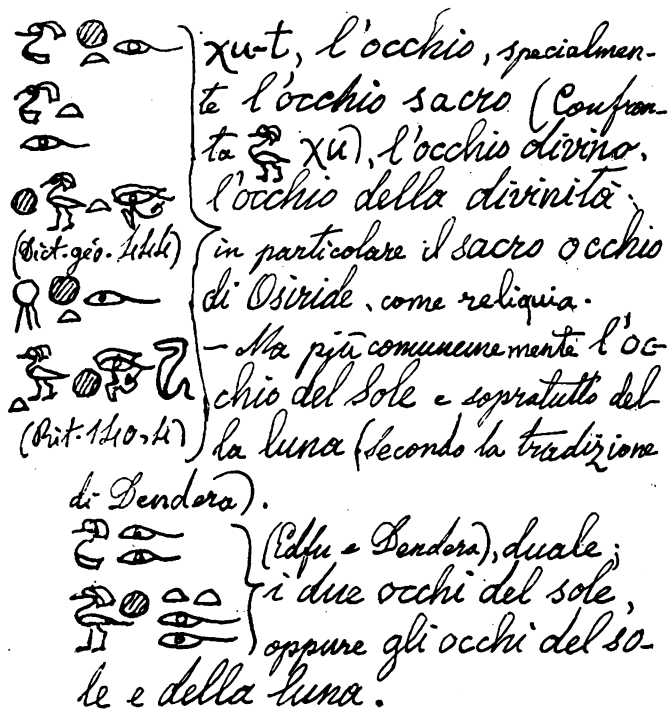 χu-t, l'occhio, specialmen-
te l'occhio sacro (Confron-
ta χu), l'occhio divino,
l'occhio della divinità;
(Dict. géo. 444) in particolare il sacro occhio
di Osiride, come reliquia.
– Ma più comunemente l'oc-
chio del Sole e sopratutto del-
(Rit. 140, 4) la luna (secondo la tradizione
di Dendera).
(Edfu e Dendera), duale;
i due occhi del sole,
oppure gli occhi del so-
le e della luna.